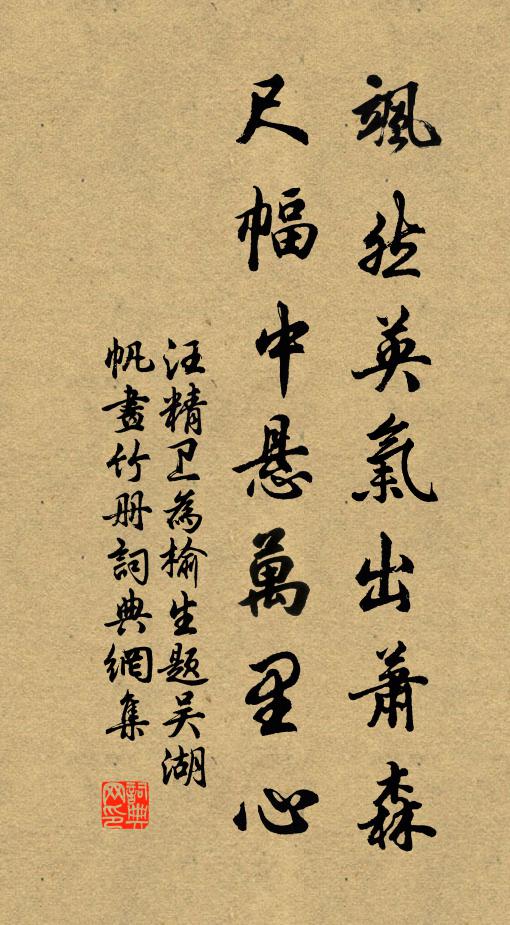 颯然英氣出蕭森
尺幅中懸萬里心
汪精卫為榆生題吴湖
帆畫竹册詞典網集
詞典网印